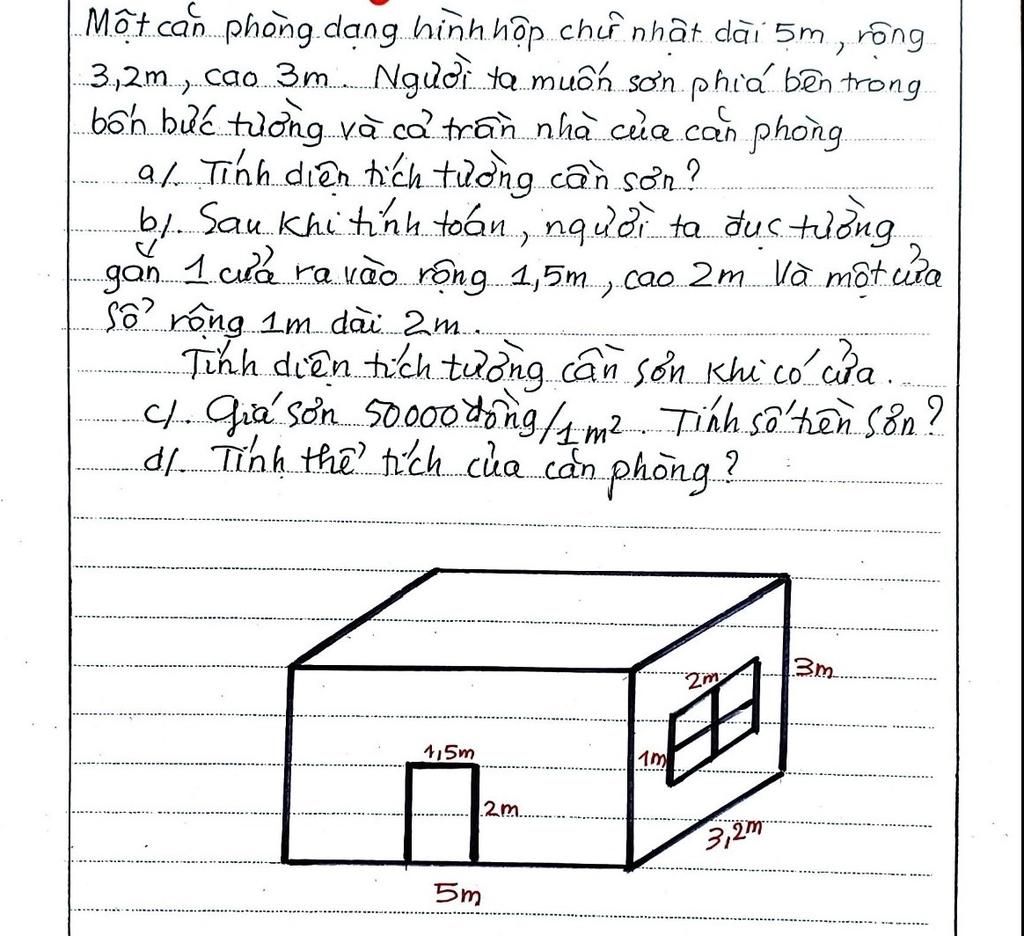 Một căn phòng dạng hình hộp chữ nhật dài 5m, rộng
3,2m, cao 3m. Người ta muốn sơn phía bên trong
bốn bức tường và cả trần nhà của căn phòng
a/. Tính diện tích tường cần sơn?
b/. Sau khi tính toán, người ta đục tường
gắn 1 cửa ra vào rộng 1,5m, cao 2m và một cửa
sổ rộng 1m dài 2m.
Tính diện tích tường cần sơn khi có cửa.
c/. Giá sơn 50000 đồng/1m². Tính số tiền sơn?
d/. Tính thể tích của căn phòng?
2m
3m
1,5m
1m
2m
3,2m
5m